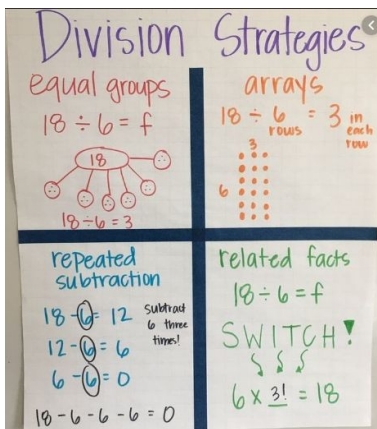 Division Strategies
equal groups
18 ÷ 6 = f
18
18 ÷ 6 = 3
arrays
18 ÷ 6 = 3 in each row
rows
3
6
repeated subtraction
18 - 6 = 12
12 - 6 = 6
6 - 6 = 0
subtract
6 three
times!
18 - 6 - 6 - 6 = 0
related facts
18 ÷ 6 = f
SWITCH!
6 x 3! = 18